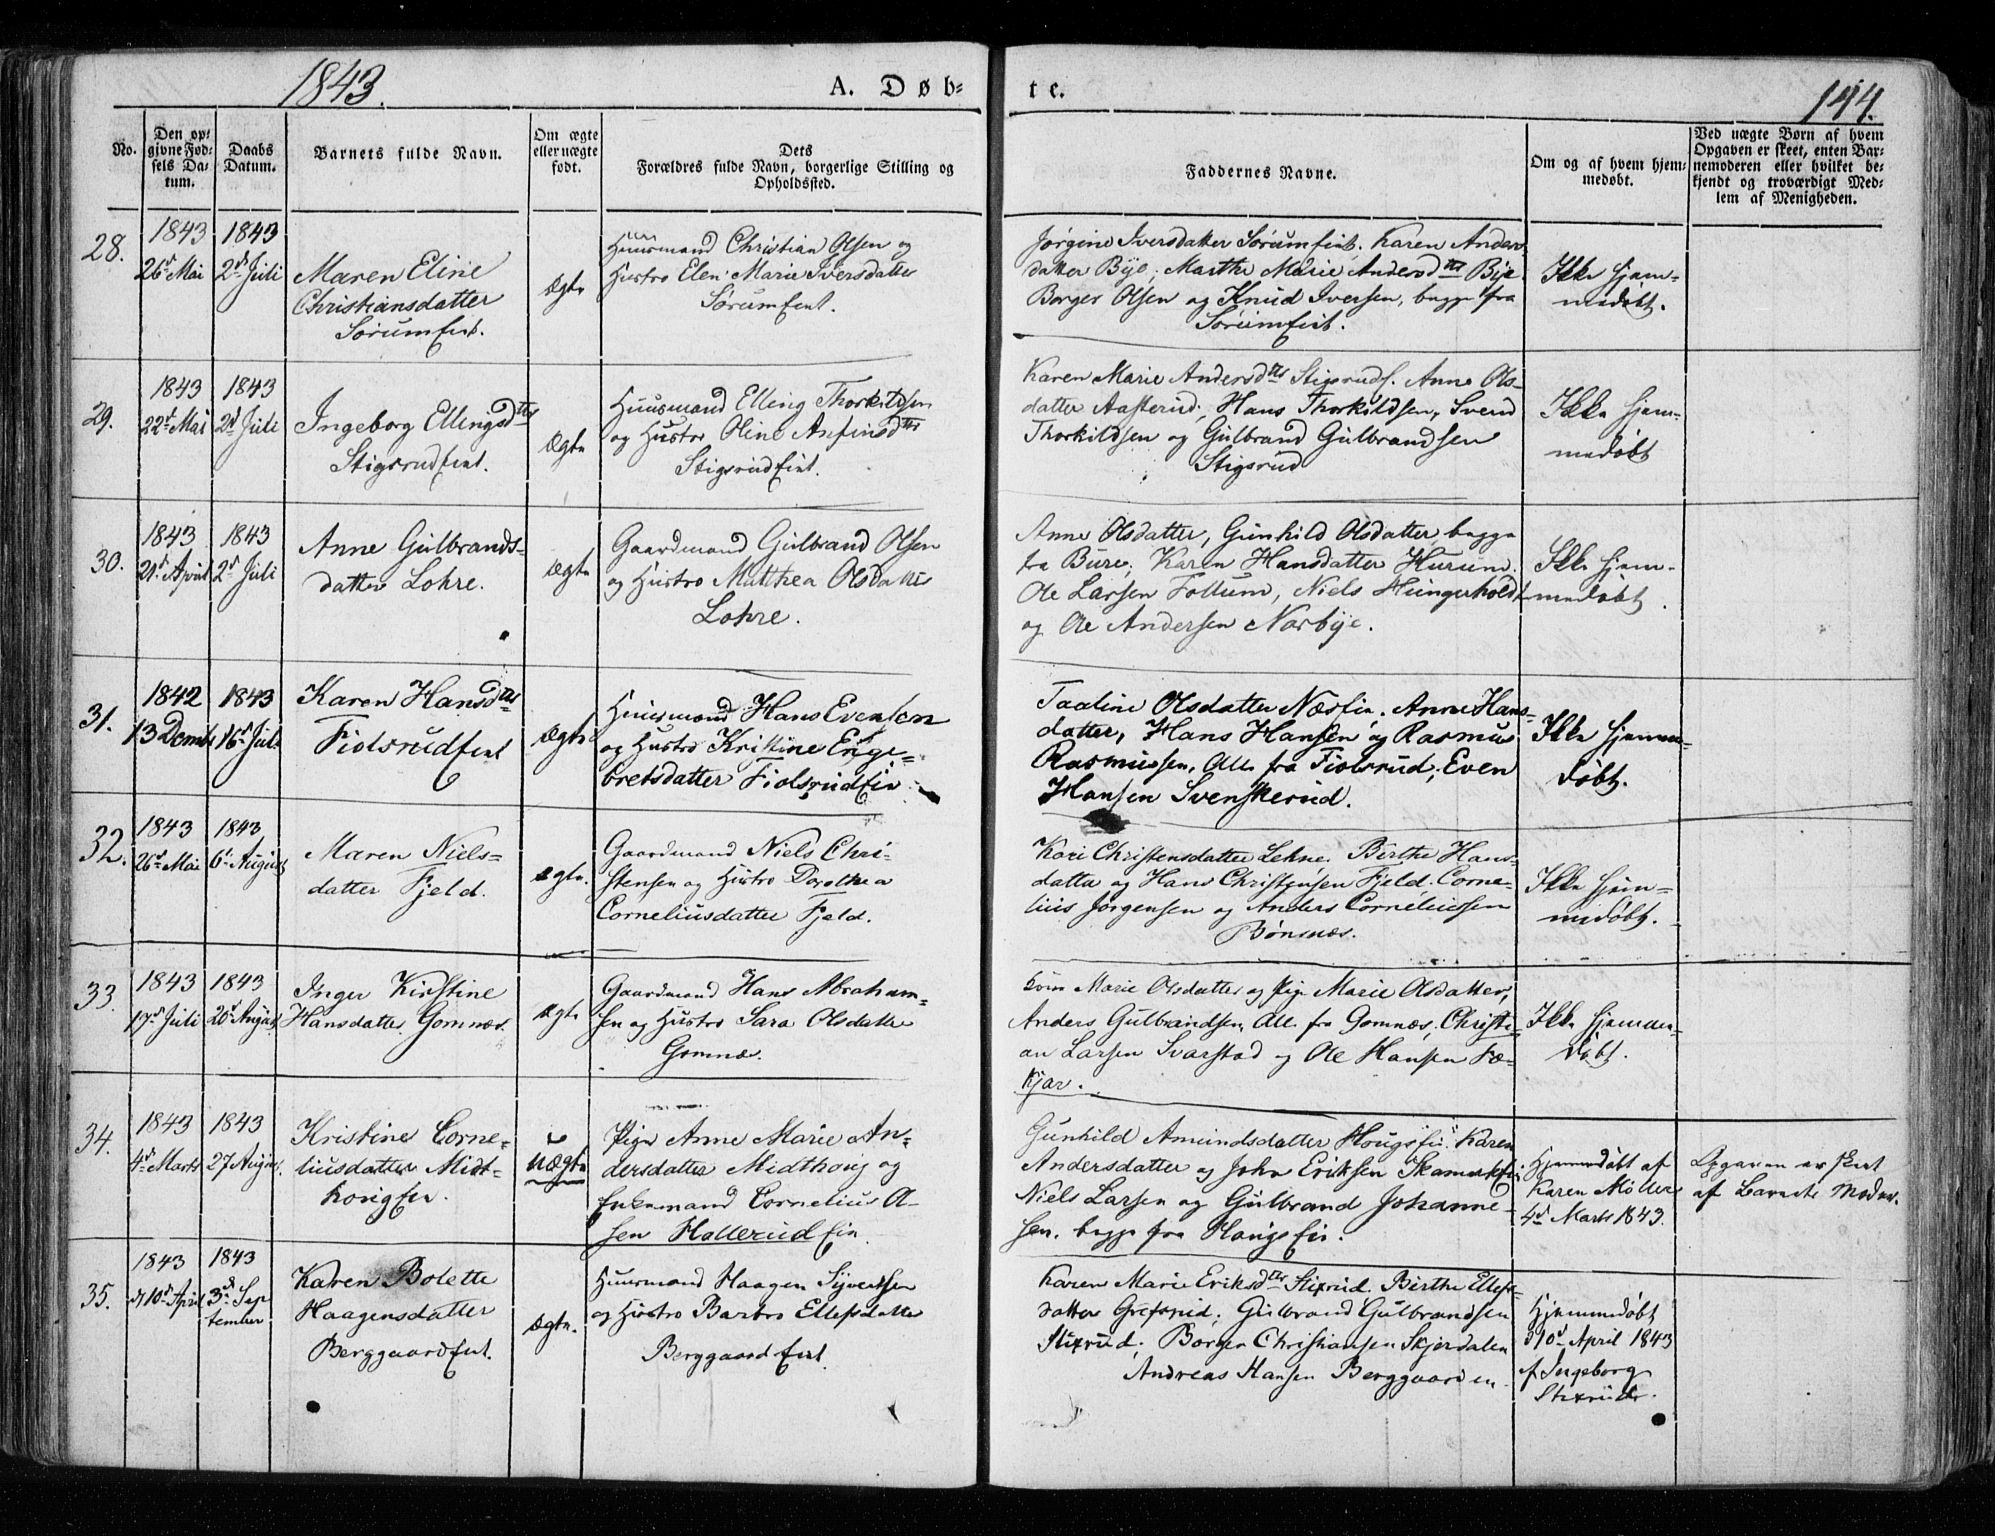 1843.
A. Døb=
te.
144.
No.
Den op=
givne Fød=
sels Da=
tum.
Daabs
Datum.
Barnets fulde Navn.
Om ægte
eller uægte
født.
Dets
Forældres fulde Navn, borgerlige Stilling og
Opholdssted.
Faddernes Navne.
Om og af hvem hjem=
medøbt.
Ved uægte Børn af hvem
Opgaven er skeet, enten Bar=
nemoderen eller hvilket be=
kjendt og troværdigt Med=
lem af Menigheden.
28.
1843
26d Mai
1843
2d Juli
Maren Eline
Christiansdatter
Sørum
Ægte
Huusmand Christian Olsen og
Hustro Elen Marie Iversdatter
Sørum
Jørgine Iversdatter Karen Anders
datter Bye; Marthe Marie Andersdtr Bye
Borger Olsen og Knud Iversen, begge fra
Ikke hjem=
medøbt.
29.
1843
22d Mai
1843
2d Juli
Ingeborg Ellingsdtr
Stigsrud
Ægte
Huusmand Elling Thorkildsen
og Hustro Oline Anfinsdtr
Stigsrud
Karen Marie Andersdtr Anne Ols=
datter Aasterud; Hans Thorkildsen, Svend
Thorkildsen og Gulbrand Gulbrandsen
Stigsrud
Ikke hjem=
medøbt
30.
1843
21d April
1843
2d Juli
Anne Gulbrands=
datter Lohre.
Ægte
Gaardmand Gulbrand Olsen
og Hustro Matthea Olsdatter
Lohre.
Anne Olsdatter, Gunhild Olsdatter, begge
fra Bure; Karen Hansdatter Hurum.
Ole Larsen Follum, Niels Hungerholdt
og Ole Andersen Norbye.
Ikke hjem=
medøbt.
31.
1842
13 Decmbr
1843
16d Juli
Karen Hansdtr
Fiolsrud
Ægte
Huusmand Hans Evensen
og Hustro Kristine Enge=
bretsdatter Fiolsrud
Taaline Olsdatter Anne Hans=
datter, Hans Hansen og Rasmus
Rasmussen, Alle fra Fiolsrud; Even
Hansen Svenskerud.
Ikke hjemme=
døbt.
32.
1843
26d Mai
1843
6d August
Maren Niels=
datter Fjeld.
Ægte.
Gaardmand Niels Chri=
stensen og Hustro Dorothea
Corneliusdatter Fjeld.
Kari Christensdatter Lehne. Birthe Hans=
datter og Hans Christensen Fjeld, Corne=
lius Jørgensen og Anders Corneliussen
Bønsnæs.
Ikke hjem=
medøbt.
33.
1843
17d Juli
1843
20d August
Inger Kirstine
Hansdatter Gomnæs.
Ægte
Gaardmand Hans Abraham=
sen og Hustro Sara Olsdatter
Gomnæs.
Marie Olsdatter og Pige Marie Olsdatter,
Anders Gulbrandsen, Alle fra Gomnæs, Christi=
an Larsen Svarstad og Ole Hansen Fæ=
kjær.
Ikke hjemme=
døbt.
34.
1843
4d Marts
1843
27 August.
Kristine Corne=
liusdatter Midt=
uægte
Pige Anne Marie An=
dersdatter Midthoug og
Enkemand Cornelius O=
sen Hallerud
Gunhild Amundsdatter Karen
Andersdatter og John Eriksen
Niels Larsen og Gulbrand Johanne=
sen, begge fra
Hjemmedøbt af
Karen Møller
4d Marts 1843.
Opgaven er skeet
af Barnets Moder.
35.
1843
d 10d April
1843
3d Sep
tember
Karen Bolette
Haagensdatter
Berggaard
Ægte.
Huusmand Haagen Syversen
og Hustro Barbro Ellefsdatter
Berggaard
Karen Marie Eriksdtr Stixrud. Birthe Ellefs=
datter Grefsrud; Gulbrand Gulbrandsen
Stixrud; Borger Christiansen Skjerdalen
Andreas Hansen Berggaarden
Hjemmedøbt
d 10d April 1843
af Ingeborg
Stixrud.